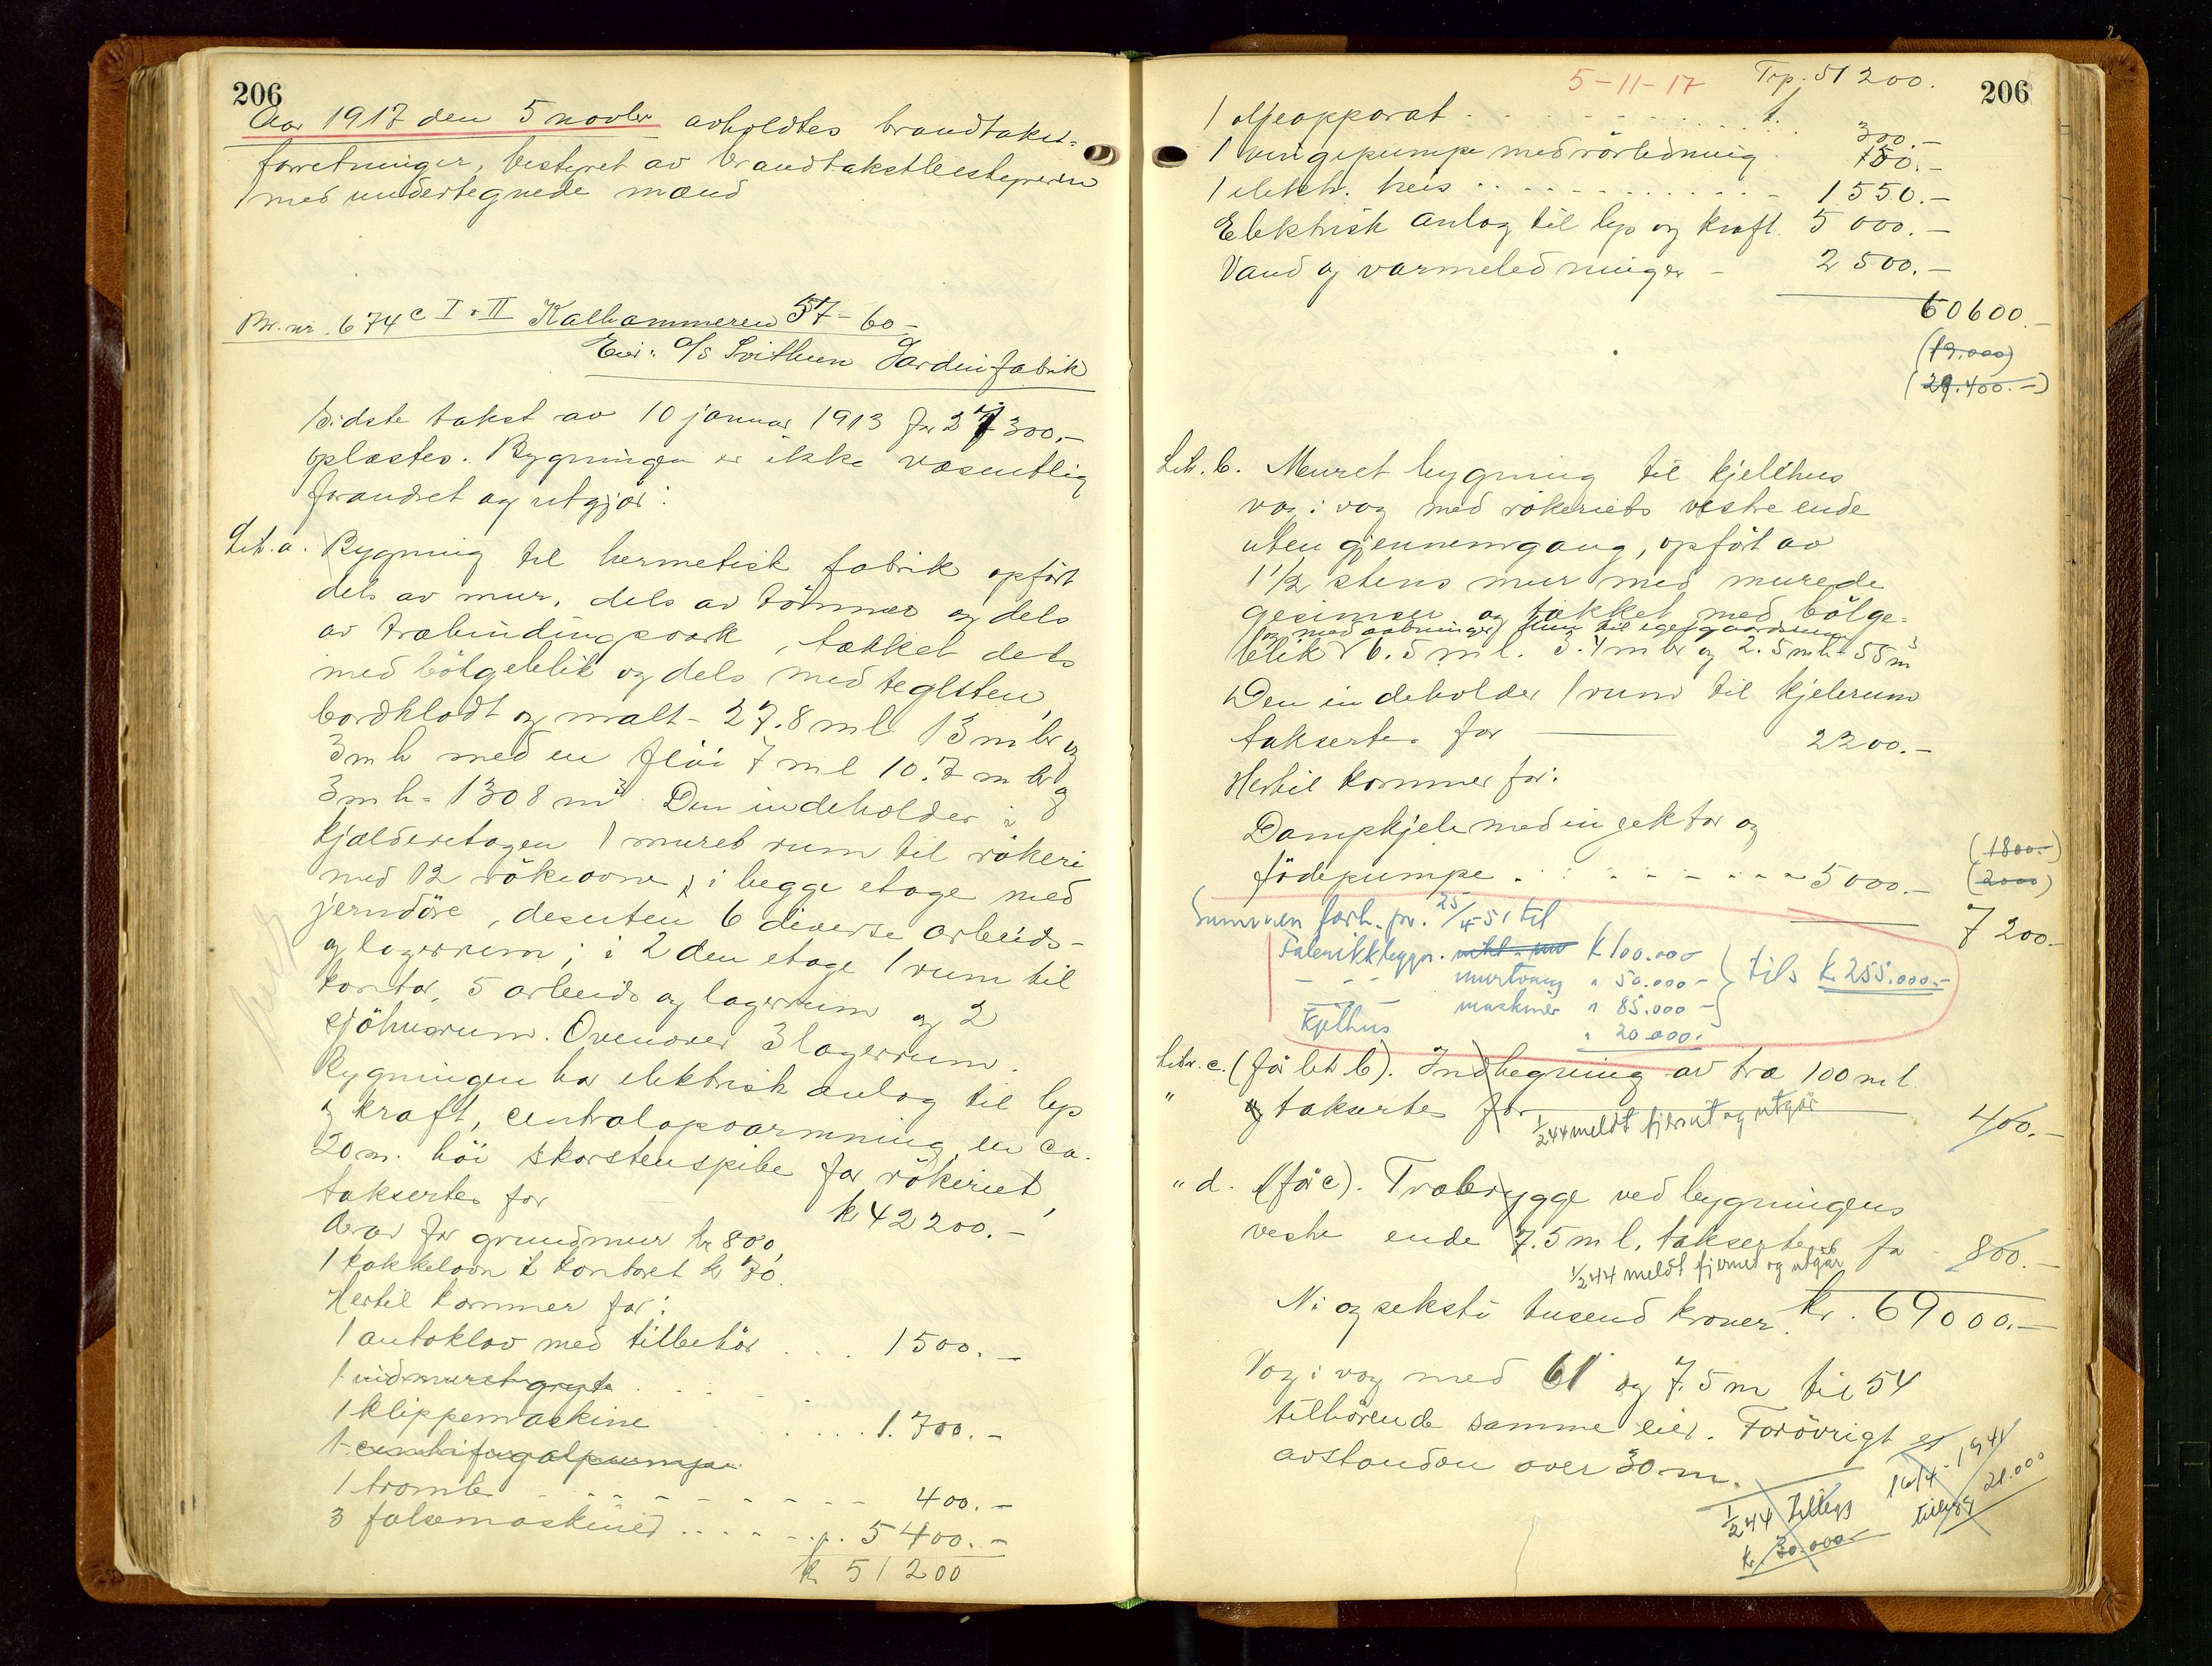 206
Aar 1917 den 5 novbr avholdtes brandtakst-
forretninger, bestyret av brandtakstbestyreren
med undertegnede mænd
Br. nr. 674 c I + II Kalhammeren 57 - 60 -
Eier: A/S Svithun Sardinfabrik
Sidste takst av 10 januar 1913 for 27300.-
oplæstes. Bygningen er ikke væsentlig
forandret og utgjør:
Lit. a. Bygning til hermetisk fabrik opført
dels av mur, dels av tømmer og dels
av træbindingsverk, tækket dels
med bølgeblik og dels med teglsten,
bordklædt og malt - 27.8 m l 13 m br og
3 m h med en fløi 7 m l 10.7 m br og
3 m h = 1308 m³. Den indeholder i
kjælderetagen 1 muret rum til røkeri
med 12 røkeovne i begge etage med
jerndøre, desuten 6 diverse arbeids-
og lagerrum; i 2den etage 1 rum til
kontor, 5 arbeids og lagerrum og 2
sjøhusrum. Ovenover 3 lagerrum.
Bygningen har elektrisk anlæg til lys
og kraft, centralopvarmning, en ca.
20 m. høi skorstenspibe for røkeriet,
takseres for kr 42200.-
derav for grundmur kr 800,
1 kakkelovn i kontoret kr 70.
Hertil kommer for:
1 autoklav med tilbehør . . . 1500.-
1 indmuret gryte . . . .
1 klippemaskine . . . . . 1.700.-
1 centrifugalpumpe
1 tromle - - - - - - - - 400.-
3 falsemaskiner . . . . . p. 5400.-
kr 51200
5-11-17 Trp. 51200.
206
1 oljeapparat . . . . . . . . . . 300.-
1 vingepumpe med rørledning . 150.-
1 elektr. heis . . . . . . . . . . 1550.-
Elektrisk anlæg til lys og kraft. 5000.-
Vand og varmeledninger - 2500.-
60600.-
(19.000)
(29.400.-)
Litr. b. Muret bygning til kjelhus
væg i væg med røkeriets vestre ende
uten gjennemgang, opført av
1 1/2 stens mur med murede
gesimser og tækket med bølge-
og med aabninger til eget gaardsrum
blik 6.5 m l. 3.4 m br og 2.5 m h = 55 m³
Den indeholder 1 rum til kjelerum
takseres for 2200.-
Hertil kommer for:
Dampkjele med injektor og
fødepumpe . . . . . . . . 5000.-
(1800.-)
(2000)
7200.-
Summen forh. pr. 25/4-51 til
Fabrikkbygn. k 100.000
- - - murtvang " 50.000 -
- - maskiner " 85.000 -
Kjelhus " 20.000.-
tils k. 255.000.-
Litr. c. (før litr b). Indhegning av træ 100 m l.
" takseres for 400.-
1/2 44 meldt fjernet og utgår
" d. (før c). Træbrygge ved bygningens
vestre ende 7.5 m l. takseres for - 800.-
1/2 44 meldt fjernet og utgår
Ni og seksti tusend kroner. kr. 69000.-
Væg i væg med 61 og 7.5 m til 54
tilhørende samme eier. Forøvrigt er
avstanden over 30 m.
1/2 44 tillegg
kr. 30.000
16/4-1941
tillegg 21.000